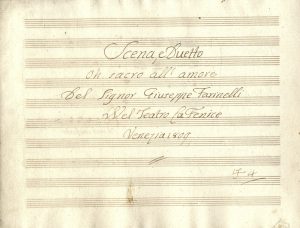 Scena, e Duetto
Oh sacro all' amore
Del Signor Giuseppe Farinelli
Nel Teatro La Fenice
Venezia 1809